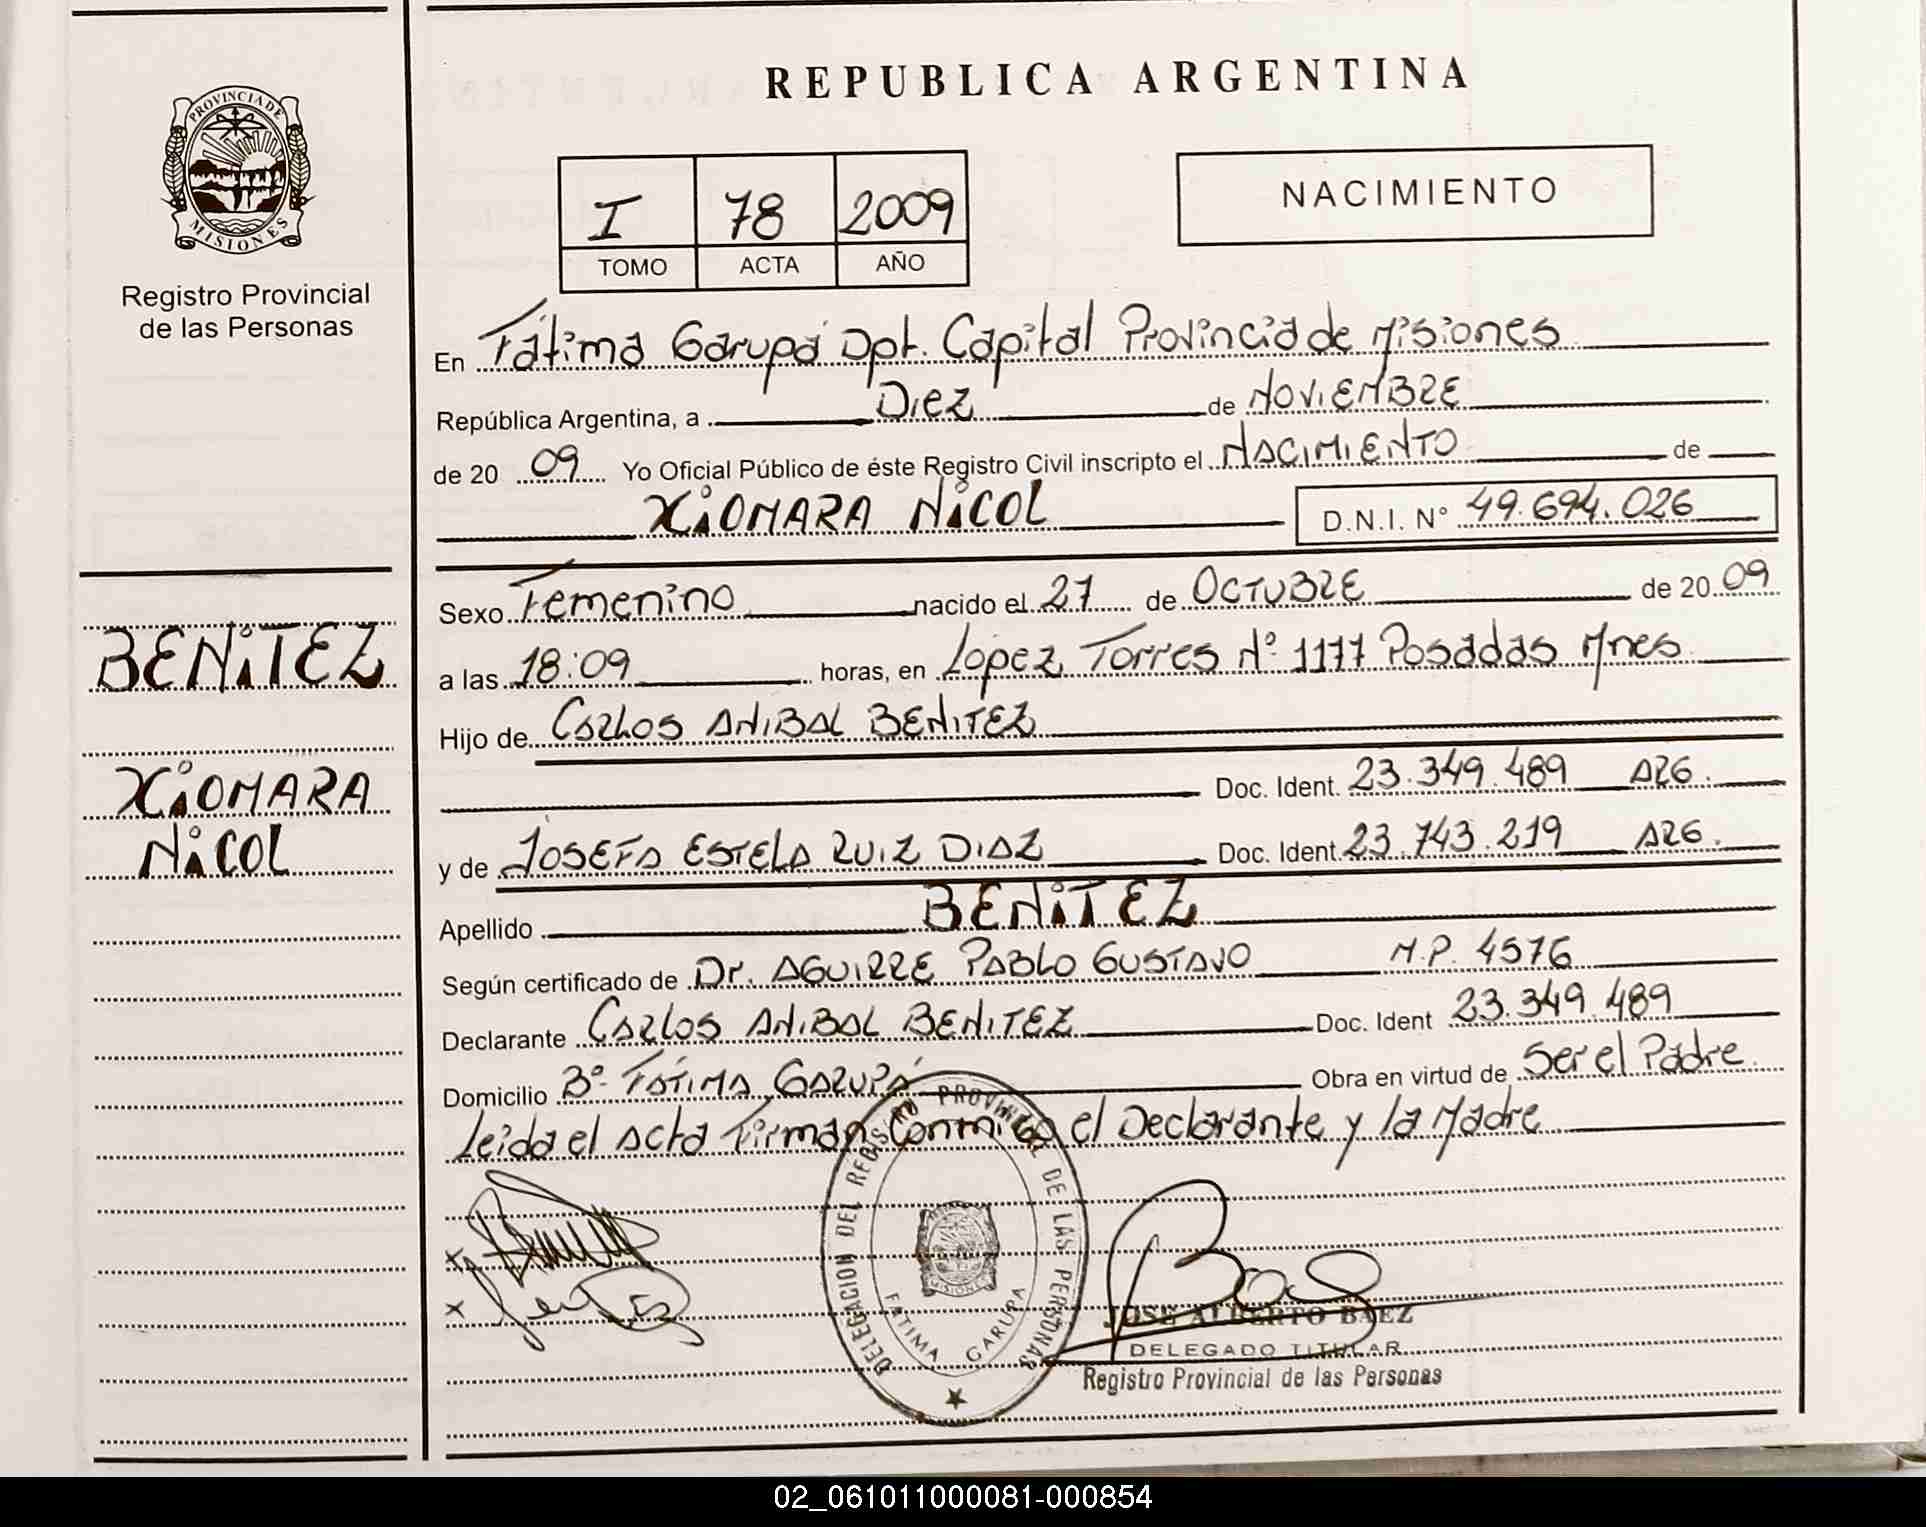 REPUBLICA ARGENTINA
PROVINCIA DE MISIONES
Registro Provincial
de las Personas
I 78 2009
TOMO ACTA AÑO
NACIMIENTO
En Fátima Garupá Dpt. Capital Provincia de Misiones
República Argentina, a Diez de NOVIEMBRE
de 20 09 Yo Oficial Público de éste Registro Civil inscripto el NACIMIENTO de
XIOMARA NICOL D.N.I. N° 49.694.026
Sexo Femenino nacido el 27 de OCTUBRE de 20 09
a las 18:09 horas, en López Torres N° 1177 Posadas Mnes
Hijo de CARLOS ANIBAL BENITEZ
Doc. Ident. 23.349.489 ARG.
y de JOSEFA ESTELA RUIZ DIAZ Doc. Ident. 23.743.219 ARG.
Apellido BENITEZ
Según certificado de Dr. AGUIRRE PABLO GUSTAVO M.P. 4576
Declarante CARLOS ANIBAL BENITEZ Doc. Ident 23.349.489
Domicilio B° FÁTIMA GARUPÁ Obra en virtud de Ser el Padre
Leida el Acta Firman Conmigo el Declarante y la Madre
BENITEZ
XIOMARA
NICOL
DELEGACION DEL REGISTRO PROVINCIAL DE LAS PERSONAS
FATIMA GARUPA
JOSE ALBERTO BAEZ
DELEGADO TITULAR
Registro Provincial de las Personas
02_061011000081-000854